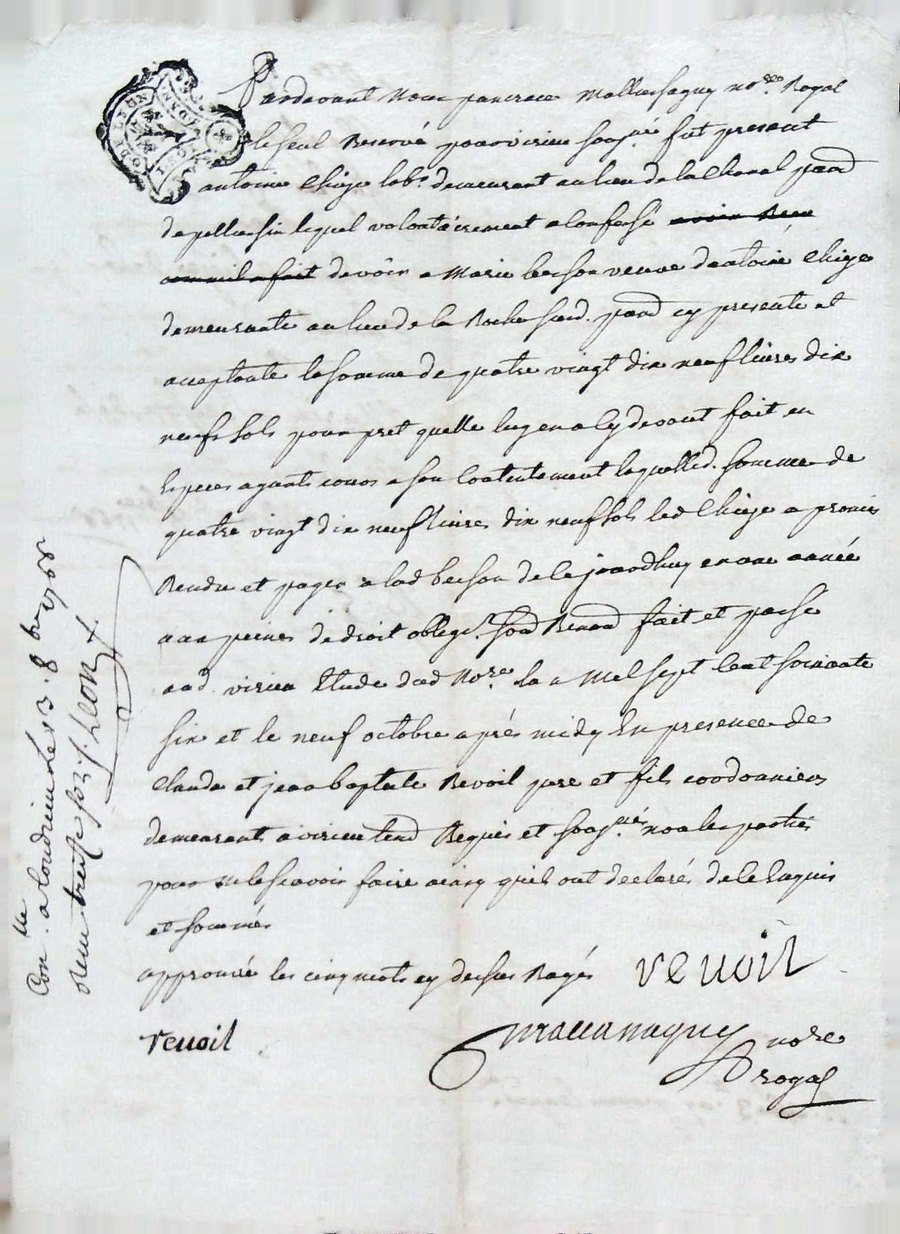 Pardevant Nous pancrace Mallassagny no.re Royal
le seul Reservé pour virieu soug.né fut present
antoine Chize lab.r demeurant au lieu de la Chanal parr
de pellussin lequel volontairement a confessé avoir Reçu
comme il a fait devoir a Marie besson veuve d'antoine Chize
demeurante au lieu de la Roche sud. parr cy presente et
acceptante la somme de quatre vingt dix neuf livres dix
neufs sols pour pret quelle luy en a cy devant fait en
Especes ayants cours a son Contentement laquelled. somme de
quatre vingt dix neuf livres dix neuf sols led Chize a promis
Rendre et payer a lad besson de ce jourdhuy en une année
aux peines de droit oblige.on soud Renond fait et passé
aud. virieu Etude dud No.re la n Mil sept Cent soixante
six et le neuf octobre aprés midy En presence de
Claude et jean baptiste Revoil pere et fils cordonniers
demeurant a virieu Requis et soug.nés non les parties
pour ne le scavoir faire ainsy quils ont declarés de ce Enquis
et sommés
approuvé les cinq mots cy dessus Rayés revoil
revoil
no.re
royal
Con.lle a Condrieu Le 13. 8.bre 1766
Reçu treize s. Leon